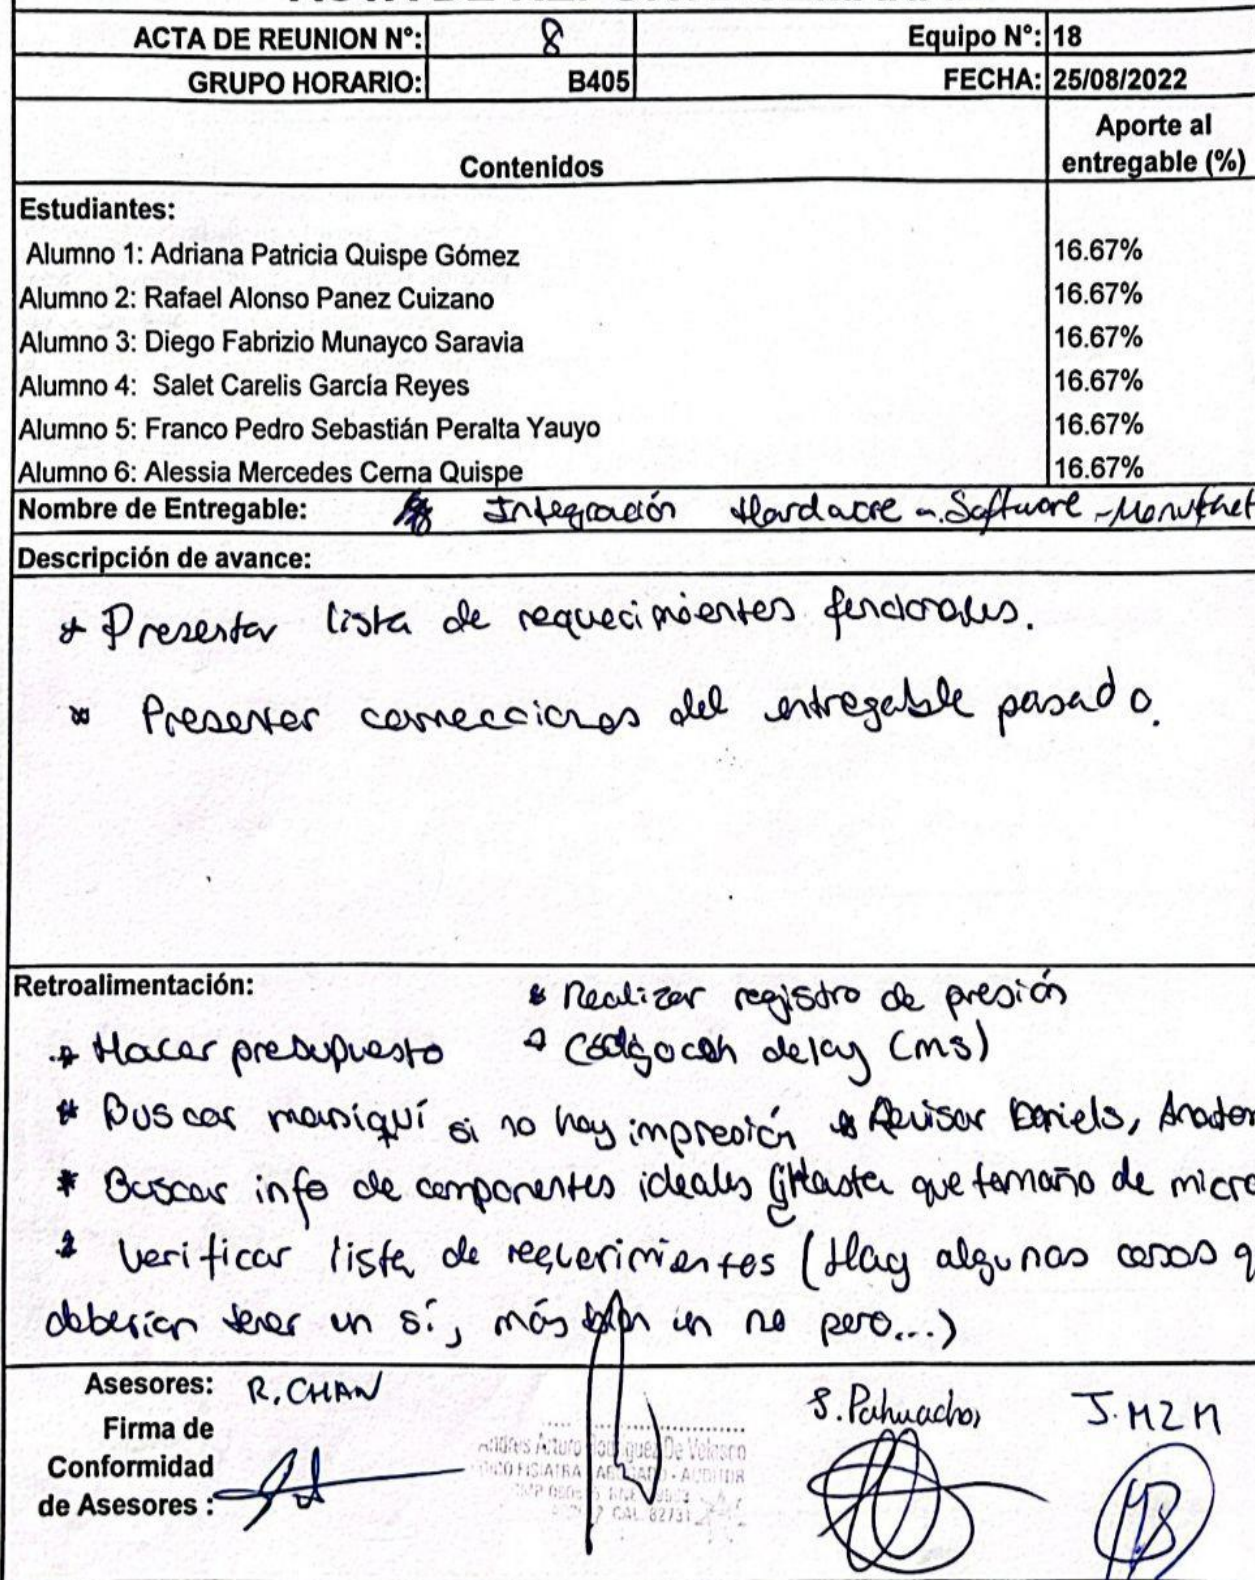 ACTA DE REUNION N°: 8 Equipo N°: 18
GRUPO HORARIO: B405 FECHA: 25/08/2022
Contenidos Aporte al entregable (%)
Estudiantes:
Alumno 1: Adriana Patricia Quispe Gómez 16.67%
Alumno 2: Rafael Alonso Panez Cuizano 16.67%
Alumno 3: Diego Fabrizio Munayco Saravia 16.67%
Alumno 4: Salet Carelis García Reyes 16.67%
Alumno 5: Franco Pedro Sebastián Peralta Yauyo 16.67%
Alumno 6: Alessia Mercedes Cerna Quispe 16.67%
Nombre de Entregable: Integración Hardware - Software -
Descripción de avance:
* Presentar lista de requerimientos funcionales.
* Presentar correcciones del entregable pasado.
Retroalimentación: * Realizar registro de presión
* Hacer presupuesto * Código con delay (ms)
* Buscar maniquí si no hay impresión * Revisar Daniels,
* Buscar info de componentes ideales (¿Hasta que tamaño de micro
* Verificar lista de requerimientos (Hay algunas cosas q
deberían tener un sí, más bien un no pero...)
Asesores: R. CHAN S. Pahuacho J. MZM
Firma de
Conformidad
de Asesores :
Andres Arturo Rodriguez De Velasco